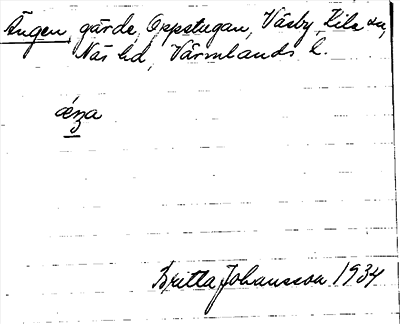 Ängen, gärde, Oppstugan, Väsby, Kila sn,
Näs hd, Värmlands l.
Britta Johansson 1934